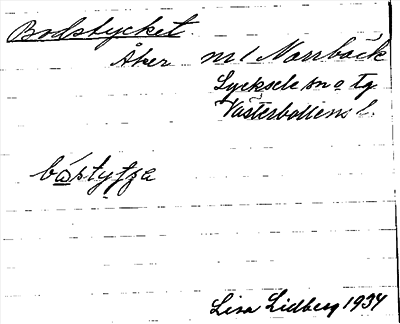 Bodstycket
Åker nr 1 Norrbäck
Lycksele sn o tg
Västerbottens l.
båstyʃʒa
Lisa Lidberg 1934